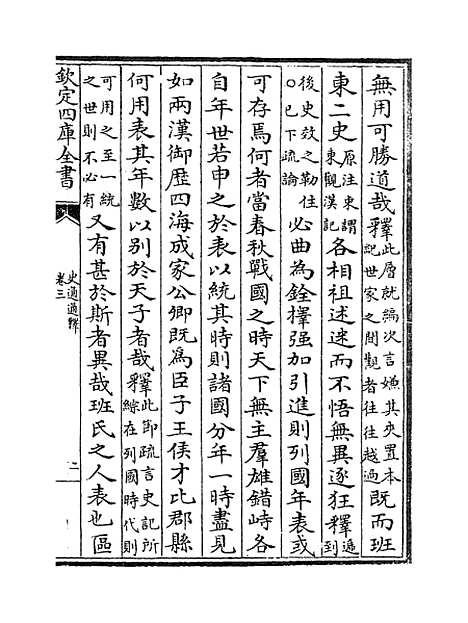 無用可勝道哉釋此層就編次言嫌其夾置本紀世家之間觀者往往越過既而班
東二史原注東謂東觀漢記各相祖述迷而不悟無異逐狂釋遞到
後史效之勒住○已下疏論必曲為銓擇强加引進則列國年表或
可存焉何者當春秋戰國之時天下無主羣雄錯峙各
自年世若申之於表以統其時則諸國分年一時盡見
如兩漢御歴四海成家公卿既爲臣子王侯才比郡縣
何用表其年數以别於天子者哉釋此節疏言史記所綜在列國時代則
可用之至一統之世則不必有又有甚於斯者異哉班氏之人表也區
欽定四庫全書
史通通釋
卷三
二